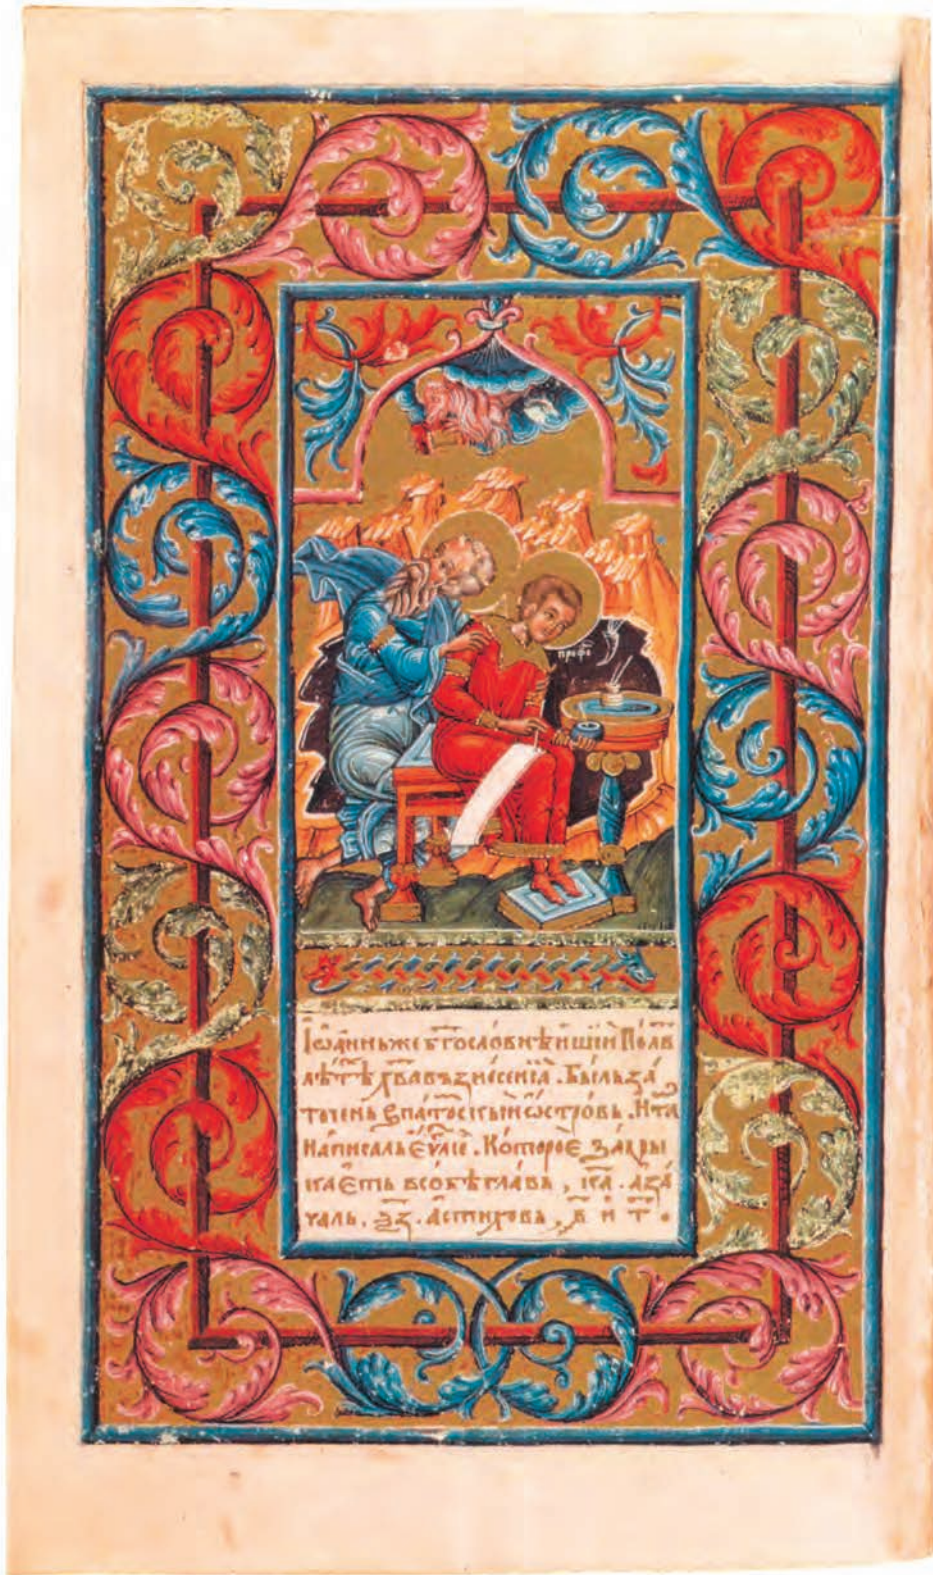 прохо
Іѡаннъже бг҃ословнѣйшій Полв҃
лѣтѣ хв҃авъзнесенїа . Былъза
точенъ впатоскьій ѡстровъ . Ита
написалъ Еѵ҃лїе . Которое закры
каетъ всобѣглавъ , к҃а . аза
чалъ . ѯ҃з . астиховъ , в҃ и т҃ .